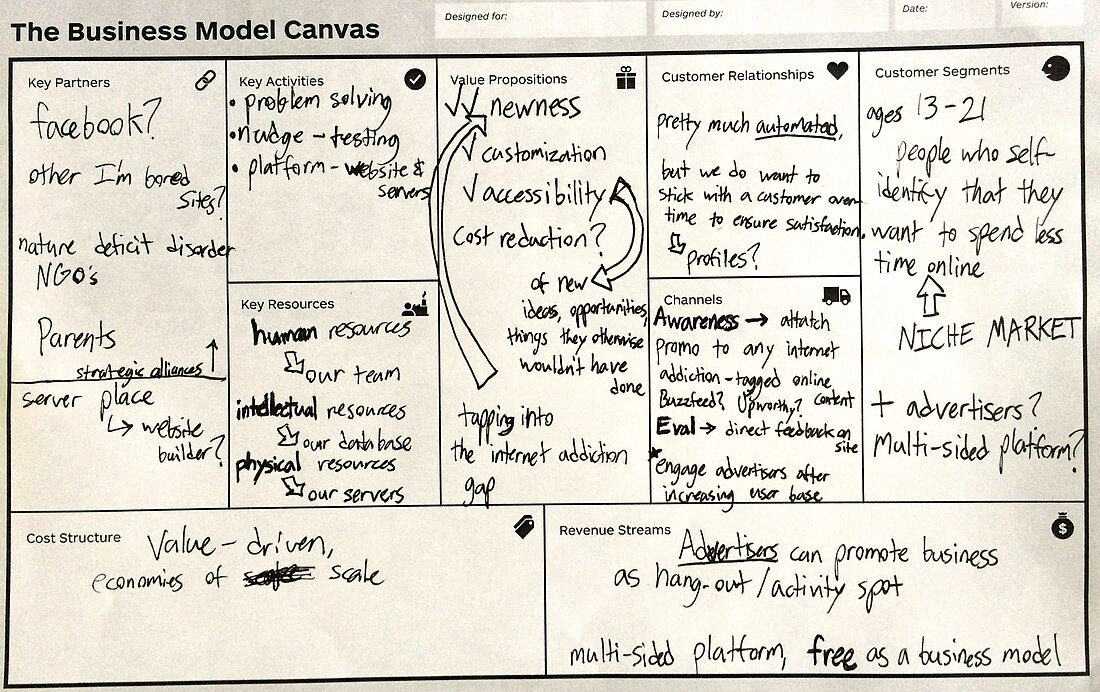 Designed for:
Designed by:
Date:
Version:
The Business Model Canvas
Key Partners
facebook?
other I'm bored
sites?
nature deficit disorder
NGO's
Parents
strategic alliances
server place
website
builder?
Key Activities
• problem solving
• nudge - testing
• platform - website &
servers
Key Resources
human resources
our team
intellectual resources
our database
physical resources
our servers
Value Propositions
newness
customization
accessibility
cost reduction?
of new
ideas, opportunities,
things they otherwise
wouldn't have
done
tapping into
the internet addiction
gap
Customer Relationships
pretty much automated,
but we do want to
stick with a customer over
time to ensure satisfaction.
profiles?
Channels
Awareness → attatch
promo to any internet
addiction-tagged online
content
Buzzfeed? Upworthy?
Eval → direct feedback on
site
* engage advertisers after
increasing user base
Customer Segments
ages 13-21
people who self-
identify that they
want to spend less
time online
NICHE MARKET
+ advertisers?
Multi-sided platform?
Cost Structure
Value - driven,
economies of scale
Revenue Streams
Advertisers can promote business
as hang-out/activity spot
multi-sided platform, free as a business model